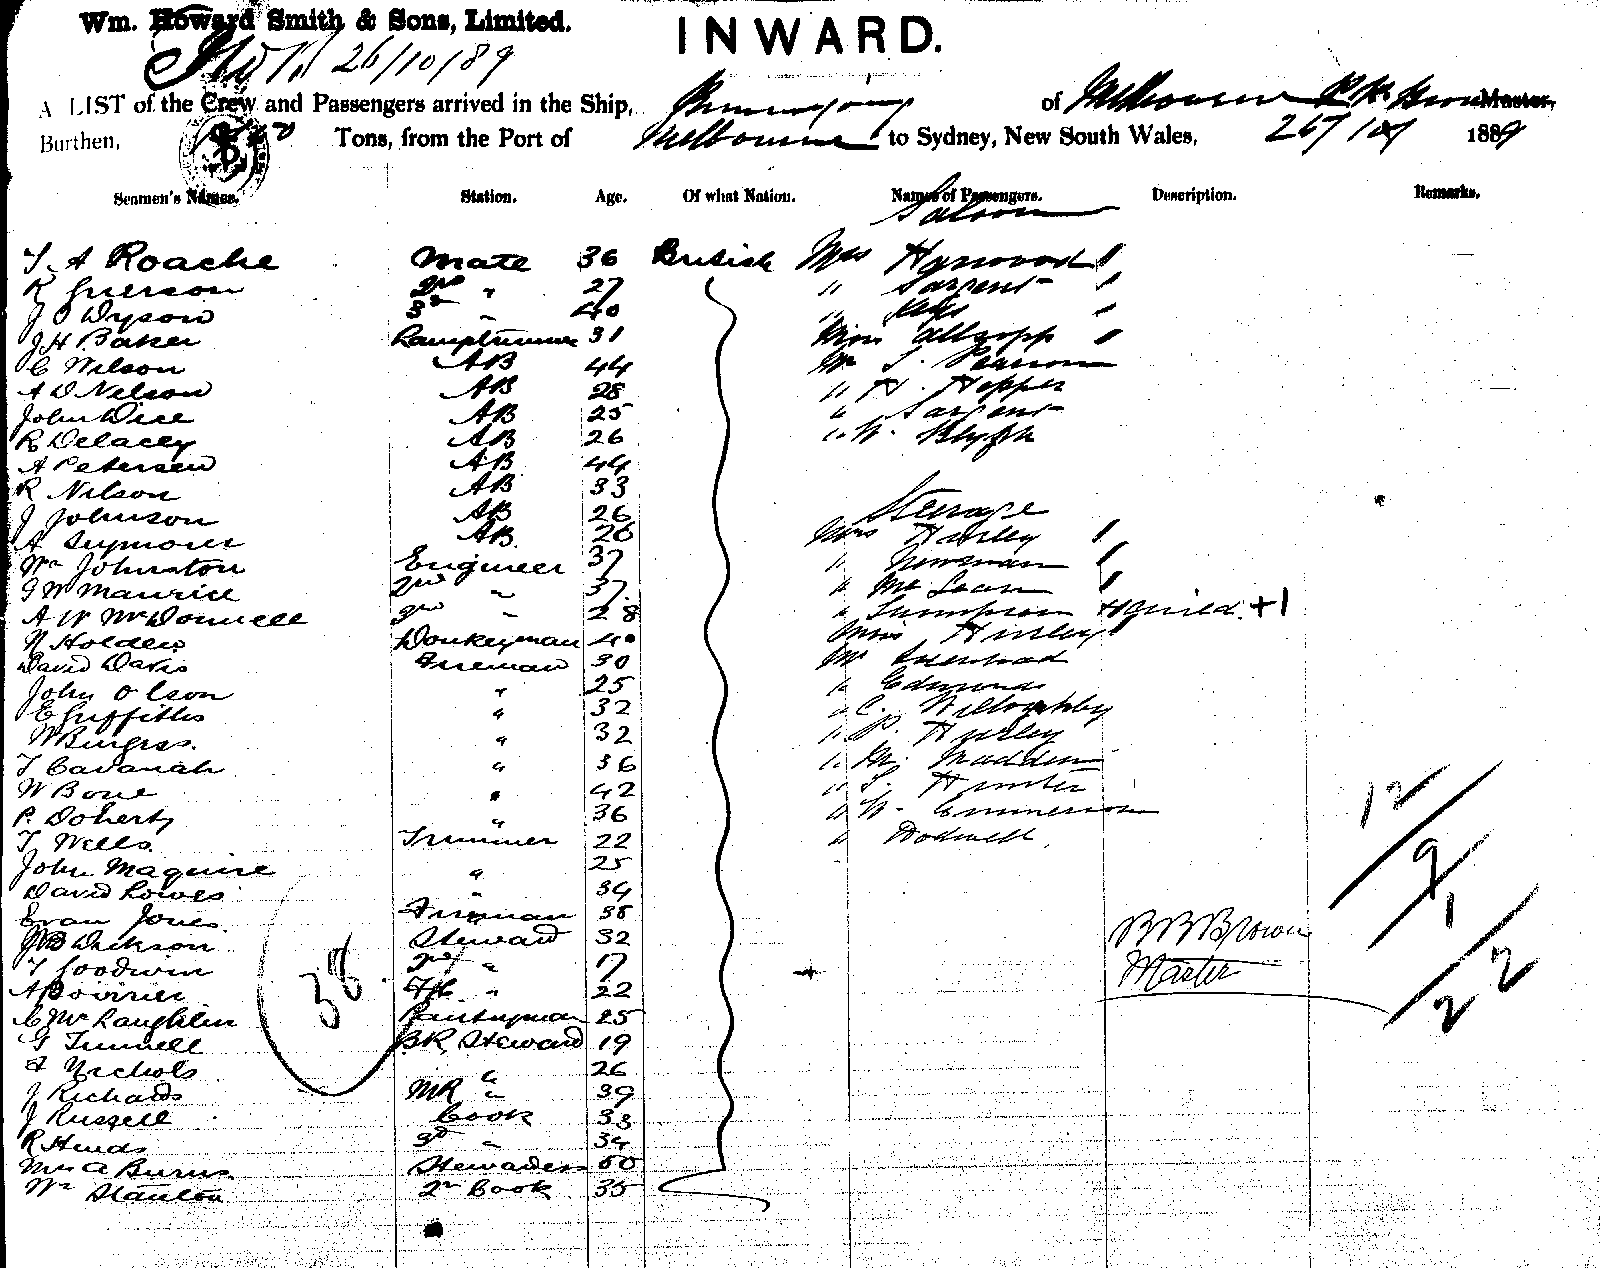 Wm. Howard Smith & Sons, Limited.
INWARD.
26/10/89
A LIST of the Crew and Passengers arrived in the Ship, of Melbourne Master,
Burthen, Tons, from the Port of Melbourne to Sydney, New South Wales, 26/10/ 1889
Seamen's Names. Station. Age. Of what Nation. Names of Passengers. Description. Remarks.
Saloon
T. A Roache Mate 36 British Mrs Haywood "
R Grierson 2nd " 27 " Sargent "
J O Dyson 3rd " 40 " "
J H Baker Lamptrimmer 31 Miss Allsopp "
C Wilson AB 44 Mr J. Pearson
A D Nelson AB 28 " H. Hopper
John Dice AB 25 " Sargent
R Delacey AB 26 " W.
A Petersen AB 44
R Nilson AB 33
Steerage
J Johnson AB 26
A Seymour AB. 26 Mrs Hurley "
Wm Johnston Engineer 37 " Newman "
G W Maurice 2nd " 37 " "
A W McDonnell 3rd " 28 " Simpson & child. +1
N Holden Donkeyman 40 Miss Hurley
David Davis Fireman 30 Mr
John Olson " 25 " Edmonds
E Griffiths " 32 " C. Willoughby
W Burgess. " 32 " P. Hurley
T Cavanah " 36 " M. Madden
W Bone " 42 " S. Hunter
P. Doherty " 36 " W. Emmerson
T Wells. Trimmer 22 " Dodwell.
John Maguire " 25
David Lowes " 34
Evan Jones. Fireman 38
J B Dickson Steward 32
T Goodwin 2nd " 17
A Poirrier F.C. " 22
C McLaughlin Pantryman 25
G Tunnell B.R. Steward 19
F Nichols " 26
J Richards MR " 39
J Russell Cook 33
R Hinds 3rd " 34
Mrs A Burns. Stewardess 50
Wm Stanton 2nd Cook 35
38
B B Brown
Master
12
9
1
22